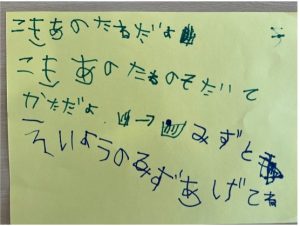 こきあのたねだよ
こきあのたねのそだて
かただよ → みずと
えいようのみずあげてね